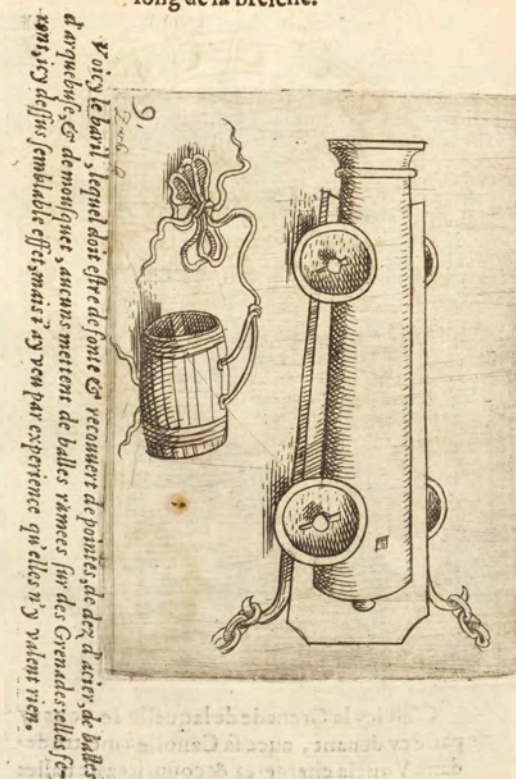 long de la breſche.
9.
Voicy le baril, lequel doit eſtre de fonte & recouuert de pointes, de dez d'acier, de balles
d'arquebuſe, & de mouſquet, aucuns mettent de balles ramees ſur des Grenades: elles fe-
ront, icy deſſus ſemblable effet, mais i'ay veu par experience qu'elles n'y valent rien.